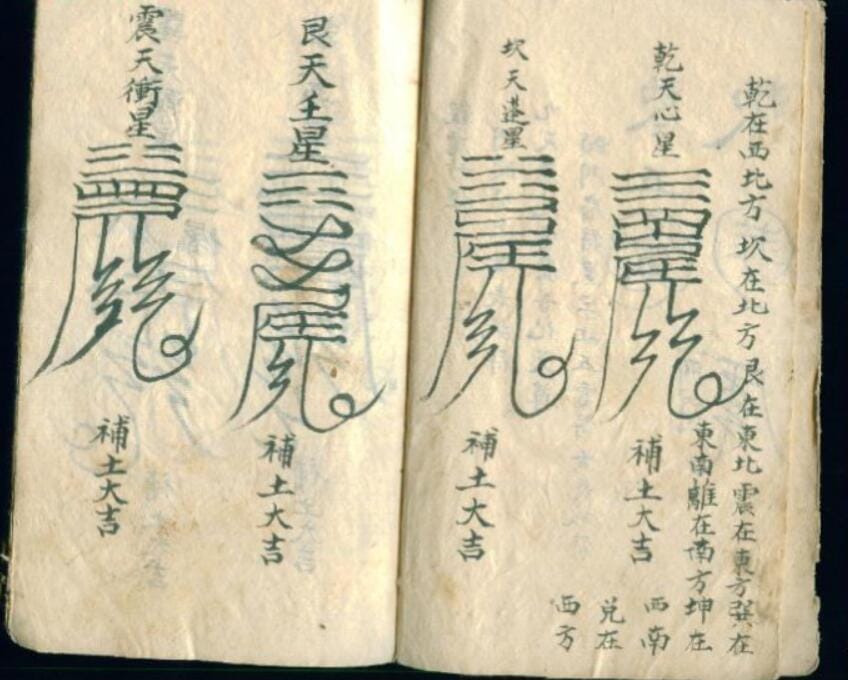 乾在西北方坎在北方艮在東北震在東方巽在
東南離在南方坤在
西南
兌在
西方
乾天心星
補土大吉
坎天蓬星
補土大吉
艮天壬星
補土大吉
震天衝星
補土大吉